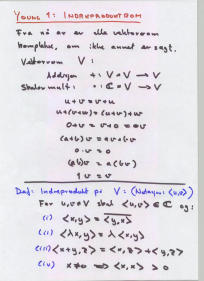 YOUNG 1: INDREPRODUKTROM
Fra nå av er alle vektorrom
komplekse, om ikke annet er sagt.
Vektorrom V:
Addisjon +: V×V → V
Skalarmult: •: ℂ×V → V
u+v = v+u
u+(v+w) = (u+v)+w
0+v = v+0 = v
(a+b)v = av+bv
0·v = 0
(ab)v = a(bv)
1v = v
Def: Indreprodukt på V: (Notasjon: <u,v>)
For u,v∈V skal <u,v> ∈ ℂ og:
(i) <x,y> = \overline{<y,x>}
(ii) <λx,y> = λ<x,y>
(iii) <x+y,z> = <x,z>+<y,z>
(iv) x≠0 ⟹ <x,x> > 0